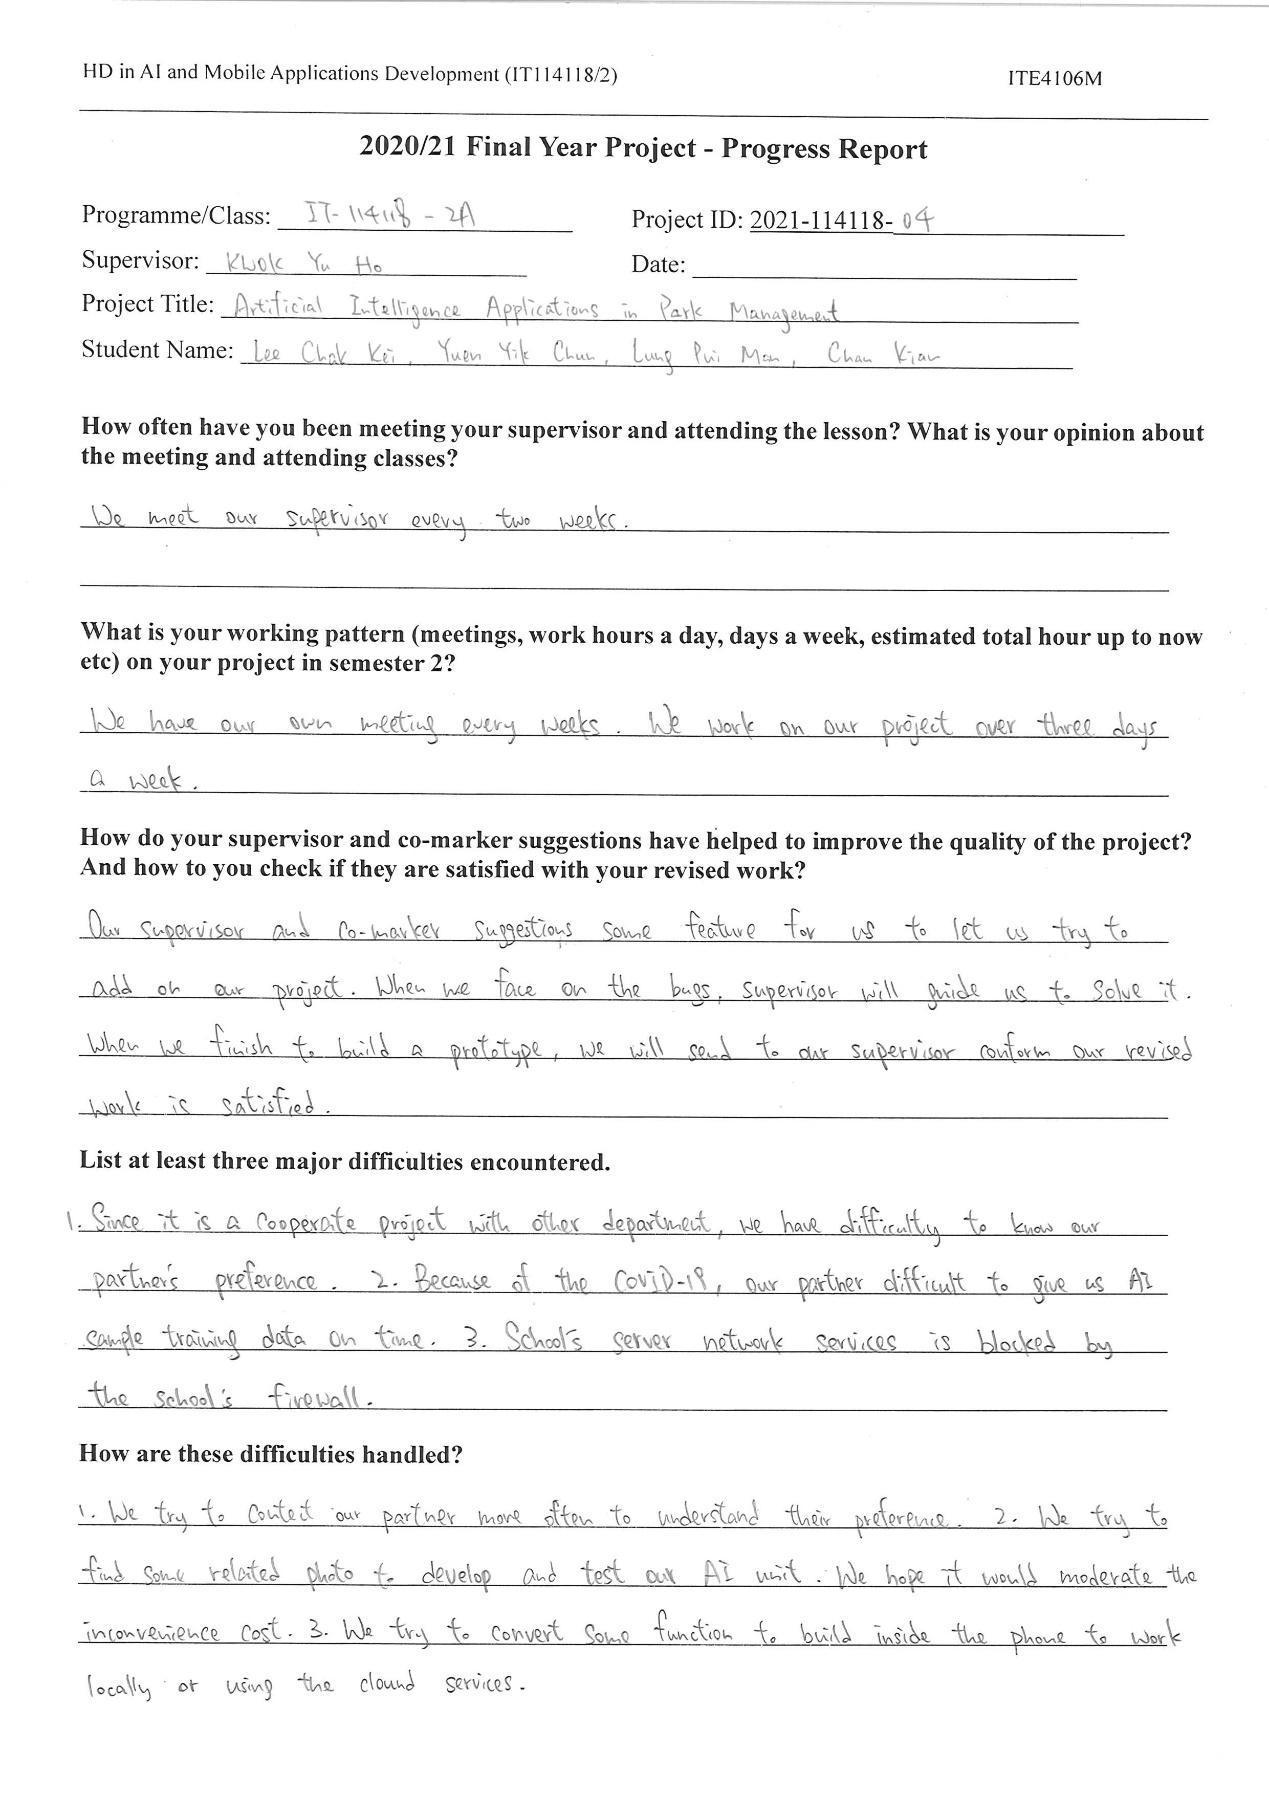 HD in AI and Mobile Applications Development (IT114118/2) ITE4106M
2020/21 Final Year Project - Progress Report
Programme/Class: IT-114118-2A Project ID: 2021-114118-04
Supervisor: Kwok Yu Ho Date:
Project Title: Artificial Intelligence Applications in Park Management
Student Name: Lee Chak Kei, Yuen Yik Chun, Lung Pui Man, Chan Kian
How often have you been meeting your supervisor and attending the lesson? What is your opinion about
the meeting and attending classes?
We meet our supervisor every two weeks.
What is your working pattern (meetings, work hours a day, days a week, estimated total hour up to now
etc) on your project in semester 2?
We have our own meeting every weeks. We work on our project over three days
a week.
How do your supervisor and co-marker suggestions have helped to improve the quality of the project?
And how to you check if they are satisfied with your revised work?
Our supervisor and co-marker suggestions some feature for us to let us try to
add on our project. When we face on the bugs, supervisor will guide us to solve it.
When we finish to build a prototype, we will send to our supervisor conform our revised
work is satisfied.
List at least three major difficulties encountered.
1. Since it is a cooperate project with other department, we have difficulty to know our
partner's preference. 2. Because of the COVID-19, our partner difficult to give us AI
sample training data on time. 3. School's server network services is blocked by
the school's firewall.
How are these difficulties handled?
1. We try to contect our partner more often to understand their preference. 2. We try to
find some related photo to develop and test our AI unit. We hope it would moderate the
inconvenience cost. 3. We try to convert some function to build inside the phone to work
locally or using the clound services.